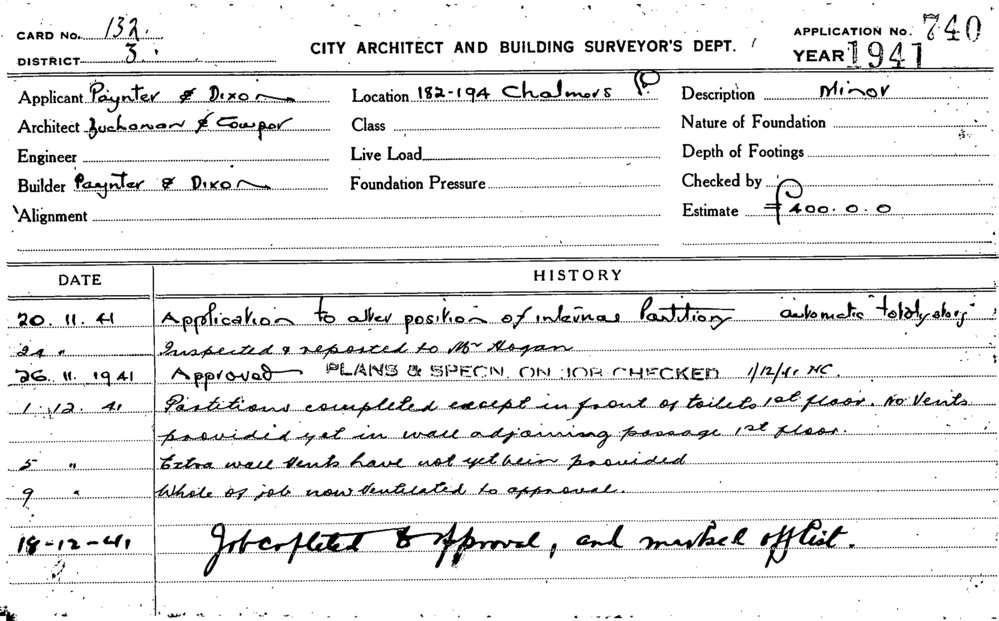 CARD No. 132.
DISTRICT 3.
CITY ARCHITECT AND BUILDING SURVEYOR'S DEPT.
APPLICATION No. 740
YEAR 1941
Applicant Paynter & Dixon
Location 182-194 Chalmers
Description Minor
Architect Buchanan & Cowper
Class
Nature of Foundation
Engineer
Live Load
Depth of Footings
Builder Paynter & Dixon
Foundation Pressure
Checked by
Alignment
Estimate £400.0.0
DATE HISTORY
20.11.41 Application to alter position of internal Partitions automatic
24 " Inspected & reported to Mr Hogan
26.11.1941 Approved PLANS & SPECN. ON JOB CHECKED 1/12/41
1.12.41 Partitions completed except in front of toilets 1st floor. No Vents
provided yet in wall adjoining passage 1st floor.
5 " Extra wall Vents have not yet been provided
9 " Whole of job now Ventilated to approval.
18-12-41 Job copleted to Approval, and marked off list.